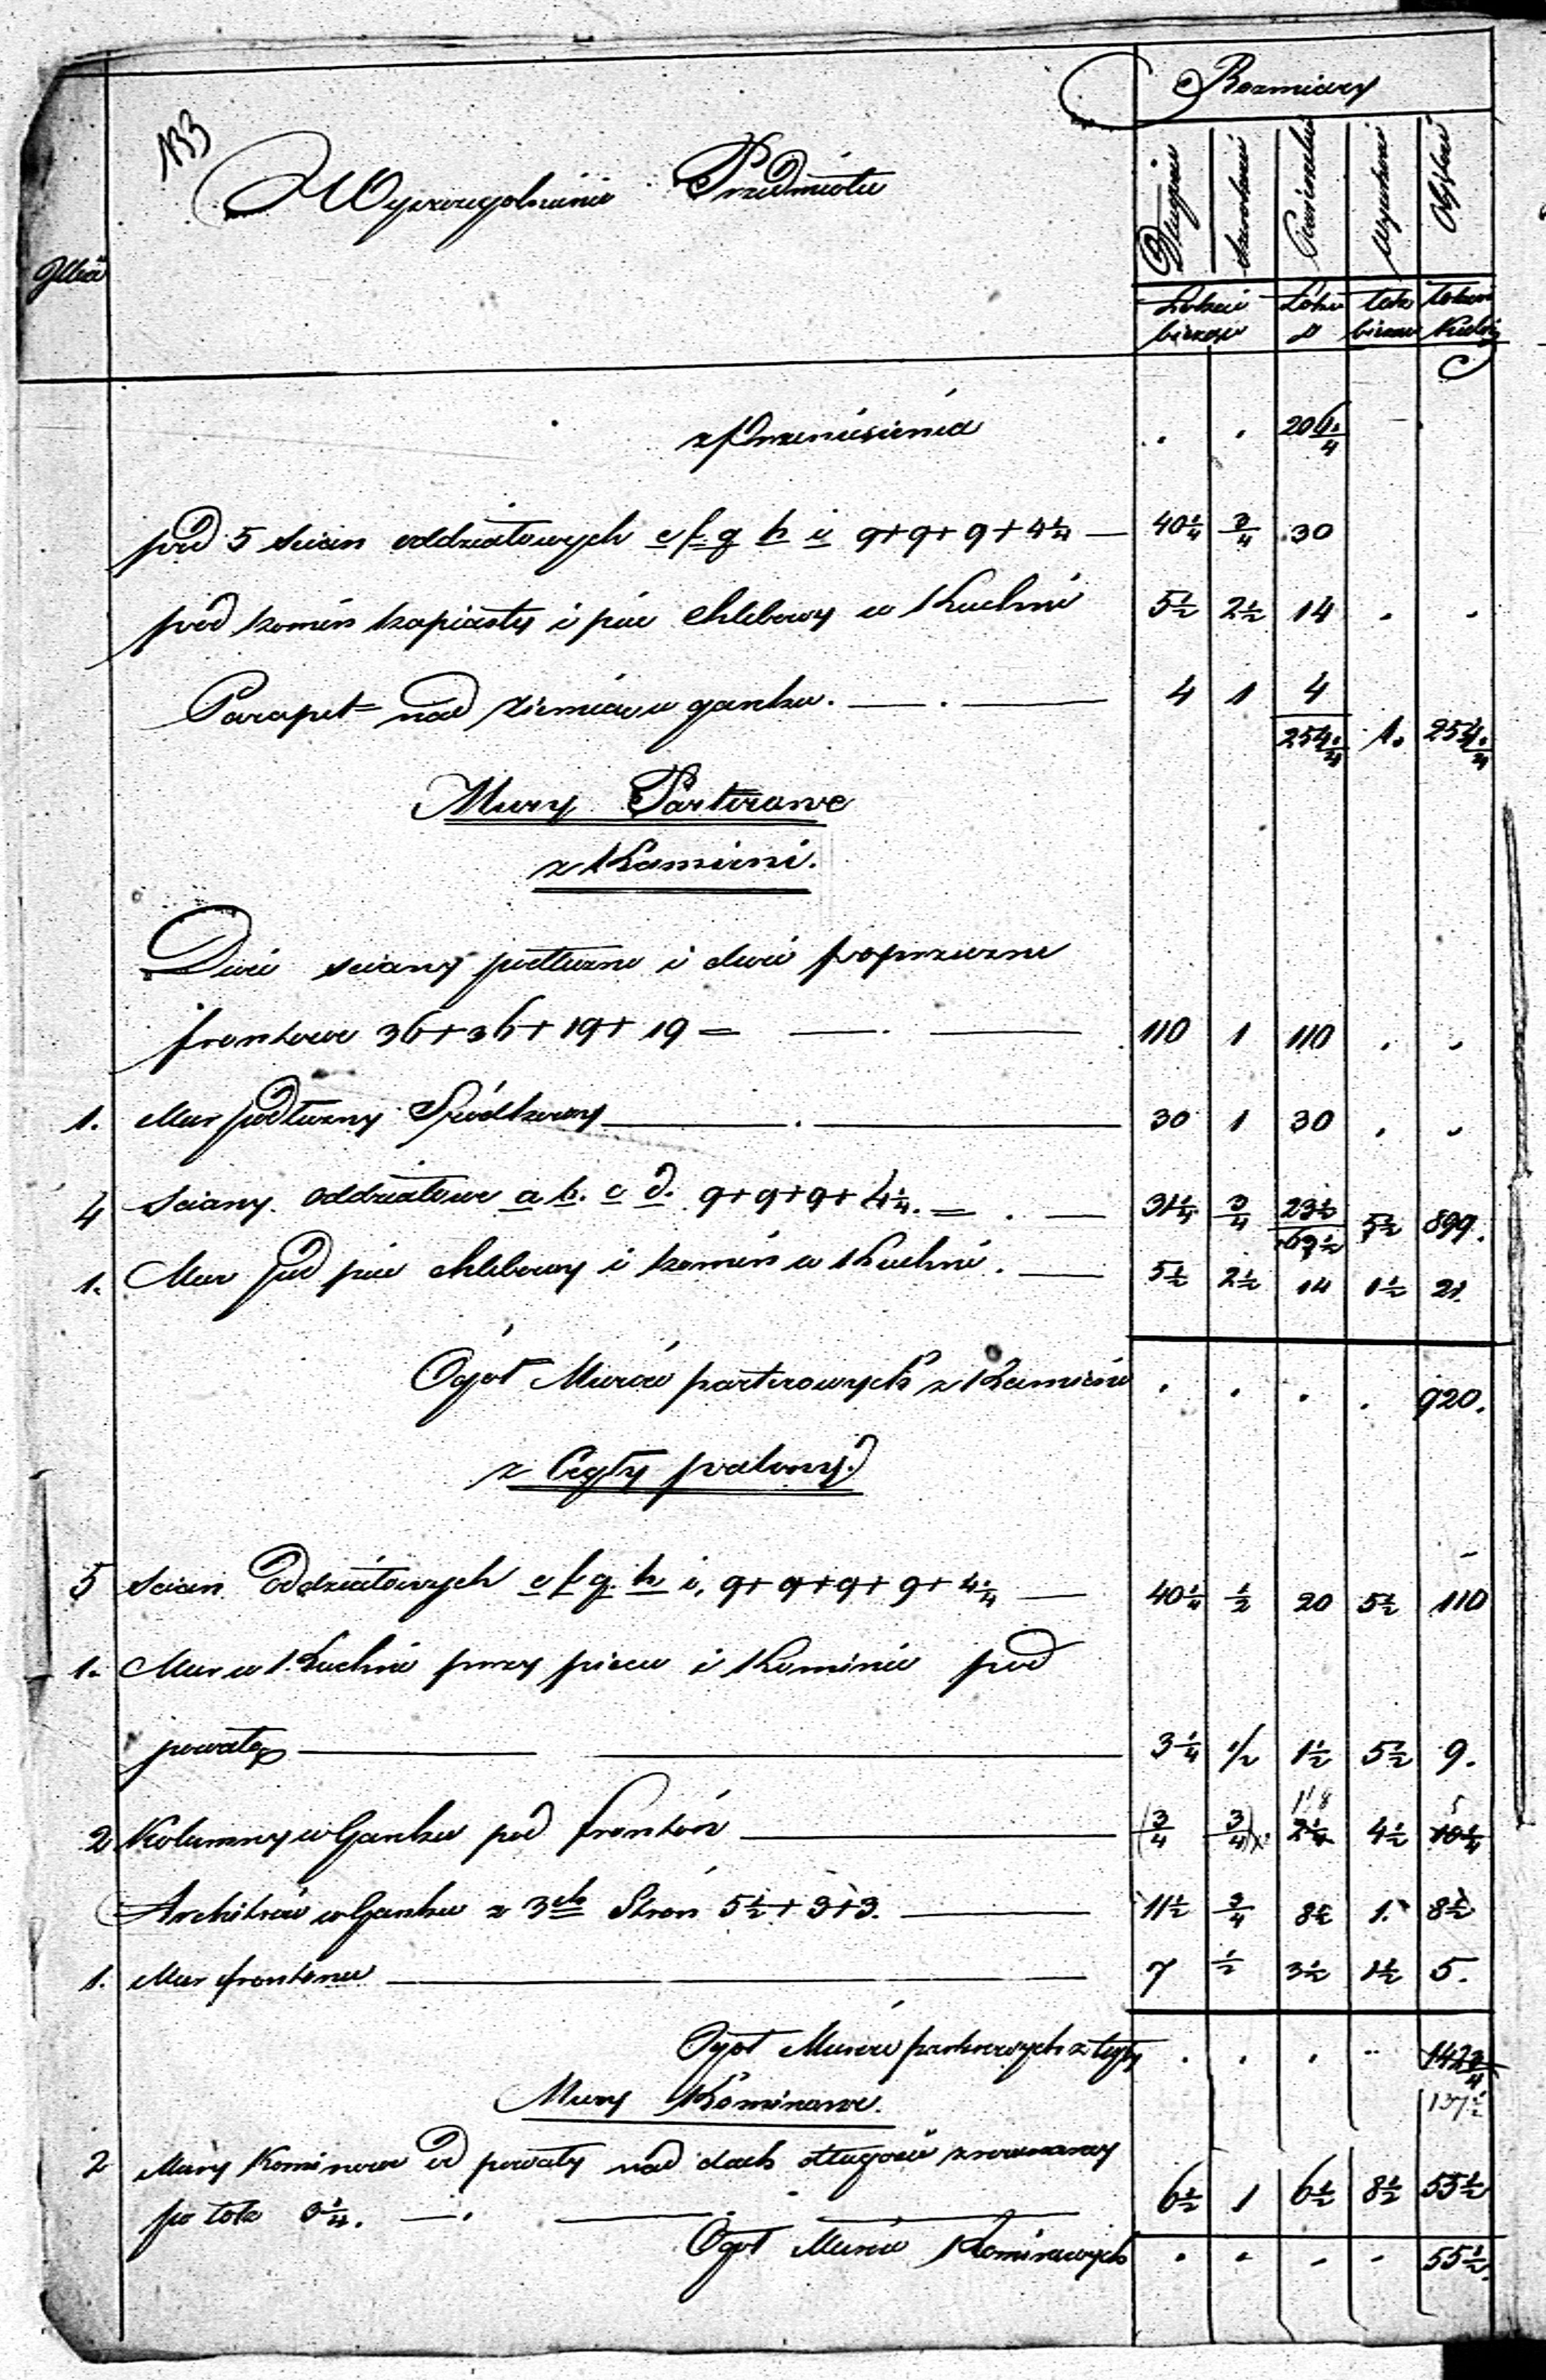 133
Rozmiary
Wyszczególnienie Przedmiotu
Ilość
Długość szerokość Powierzchnia Wysokość Objętość
Łokcie bieżące Łokcie □ łok: bieżące łokcie kubi:
z Przeniesienia . . 206 1/4
pod 5 ścian oddziałowych e f g h i 9+9+9+4 1/4 — 40 1/4 3/4 30
pod komin kapiasty i piec chlebowy w Kuchni 5 1/2 2 1/2 14 . .
Parapet nad ziemią w ganku. — . — 4 1 4
254 1/4 1. 254 1/4
Mury Parterowe
z Kamieni.
Dwie sciany podłuzne i dwie poprzeczne
frontowe 36+36+19+19 = — . — 110 1 110 . .
1. Mur podłuzny Srodkowy — . — 30 1 30 . .
4 Sciany oddziałowe a b. c d. 9+9+9+4 1/4. = . — 31 1/4 3/4 23 1/2
163 1/2 5 1/2 899.
1. Mur pod piec chlebowy i komin w Kuchni. — 5 1/2 2 1/2 14 1 1/2 21.
Ogół Murów parterowych z Kamieni . . . . 920.
z Cegły palonej.
5 scian Oddziałowych e f g. h i, 9+9+9+9+4 1/4 — 40 1/4 1/2 20 5 1/2 110
1. Mur w Kuchni przy piecu i Kominie pod
powałę — 3 1/4 1/2 1 1/2 5 1/2 9.
1 1/8 5
2 Kolumny w Ganku pod fronton — (3/4 3/4) 2 1/4 4 1/2 10 1/4
Architraw w Ganku z 3ch Stron 5 1/2+3+3. — 11 1/2 3/4 8 1/2 1. 8 1/2
1. Mur frontonu — 7 1/2 3 1/2 1 1/2 5.
Ogół Murów parterowych z Cegły . . . . 142 3/4
137 1/2
Mury Kominowe.
2 Mury Kominowe od powały nad dach długość zrównany
po łok 3 1/4. — . — 6 1/2 1 6 1/2 8 1/2 55 1/2
Ogół Murów Kominowych . . . . 55 1/2.